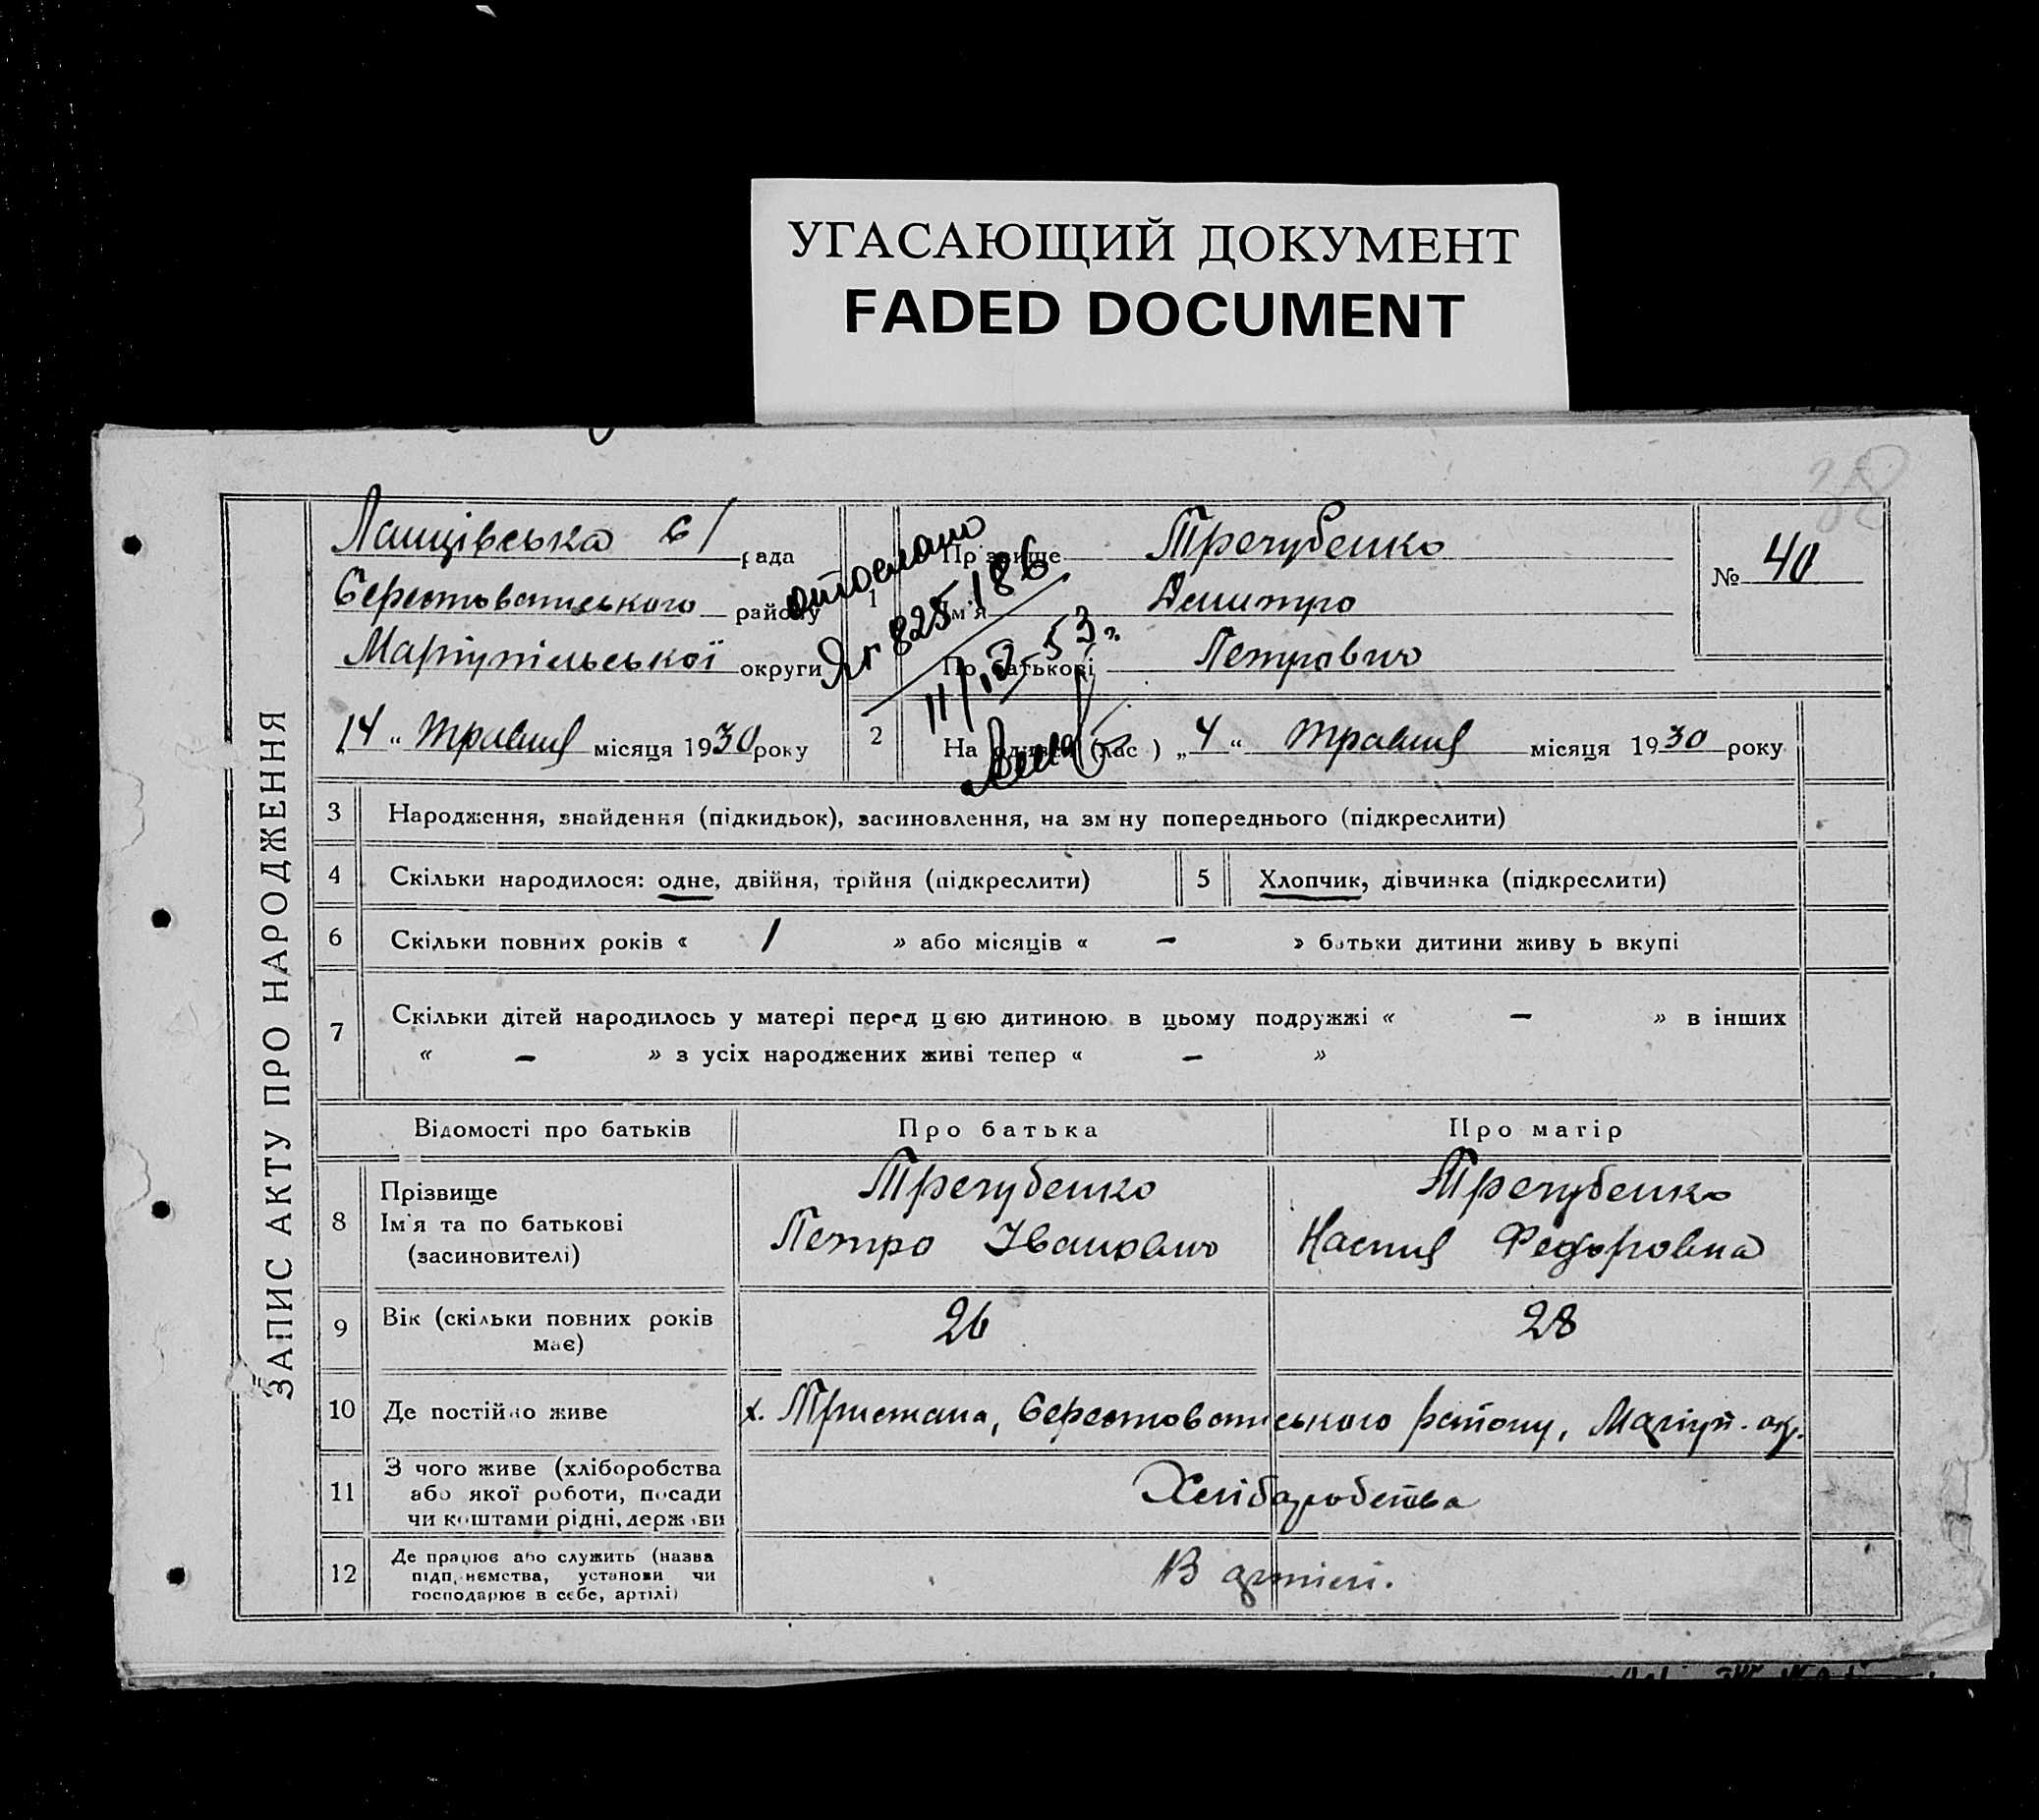 УГАСАЮЩИЙ ДОКУМЕНТ
FADED DOCUMENT
38
ЗАПИС АКТУ ПРО НАРОДЖЕННЯ
Лащівська с/ рада
Берестоватського району
Маріупільської округи
14 " травня місяця 1930 року
отослано
Яг 825186
11/12-53 г.
1 Прізвище Трегубенко
Ім'я Дмитро
По батькові Петрович
№ 40
2 На (час) „4 " травня місяця 1930 року
3 Народження, знайдення (підкидьок), засиновлення, на зміну попереднього (підкреслити)
4 Скільки народилося: одне, двійня, трійня (підкреслити)
5 Хлопчик, дівчинка (підкреслити)
6 Скільки повних років « 1 » або місяців « - » батьки дитини живуть вкупі
7 Скільки дітей народилось у матері перед цією дитиною в цьому подружжі « - » в інших
« - » з усіх народжених живі тепер « - »
Відомості про батьків Про батька Про матір
8 Прізвище
Ім'я та по батькові
(засиновителі)
Трегубенко
Петро Іванович
Трегубенко
Настя Федоровна
9 Вік (скільки повних років
має)
26 28
10 Де постійно живе х. Тристана, Берестоватиського району, Маріуп. окр.
11 З чого живе (хліборобства
або якої роботи, посади
чи коштами рідні, держави
Хліборобства
12 Де працює або служить (назва
підприємства, установи чи
господарює в себе, артілі)
В артілі.